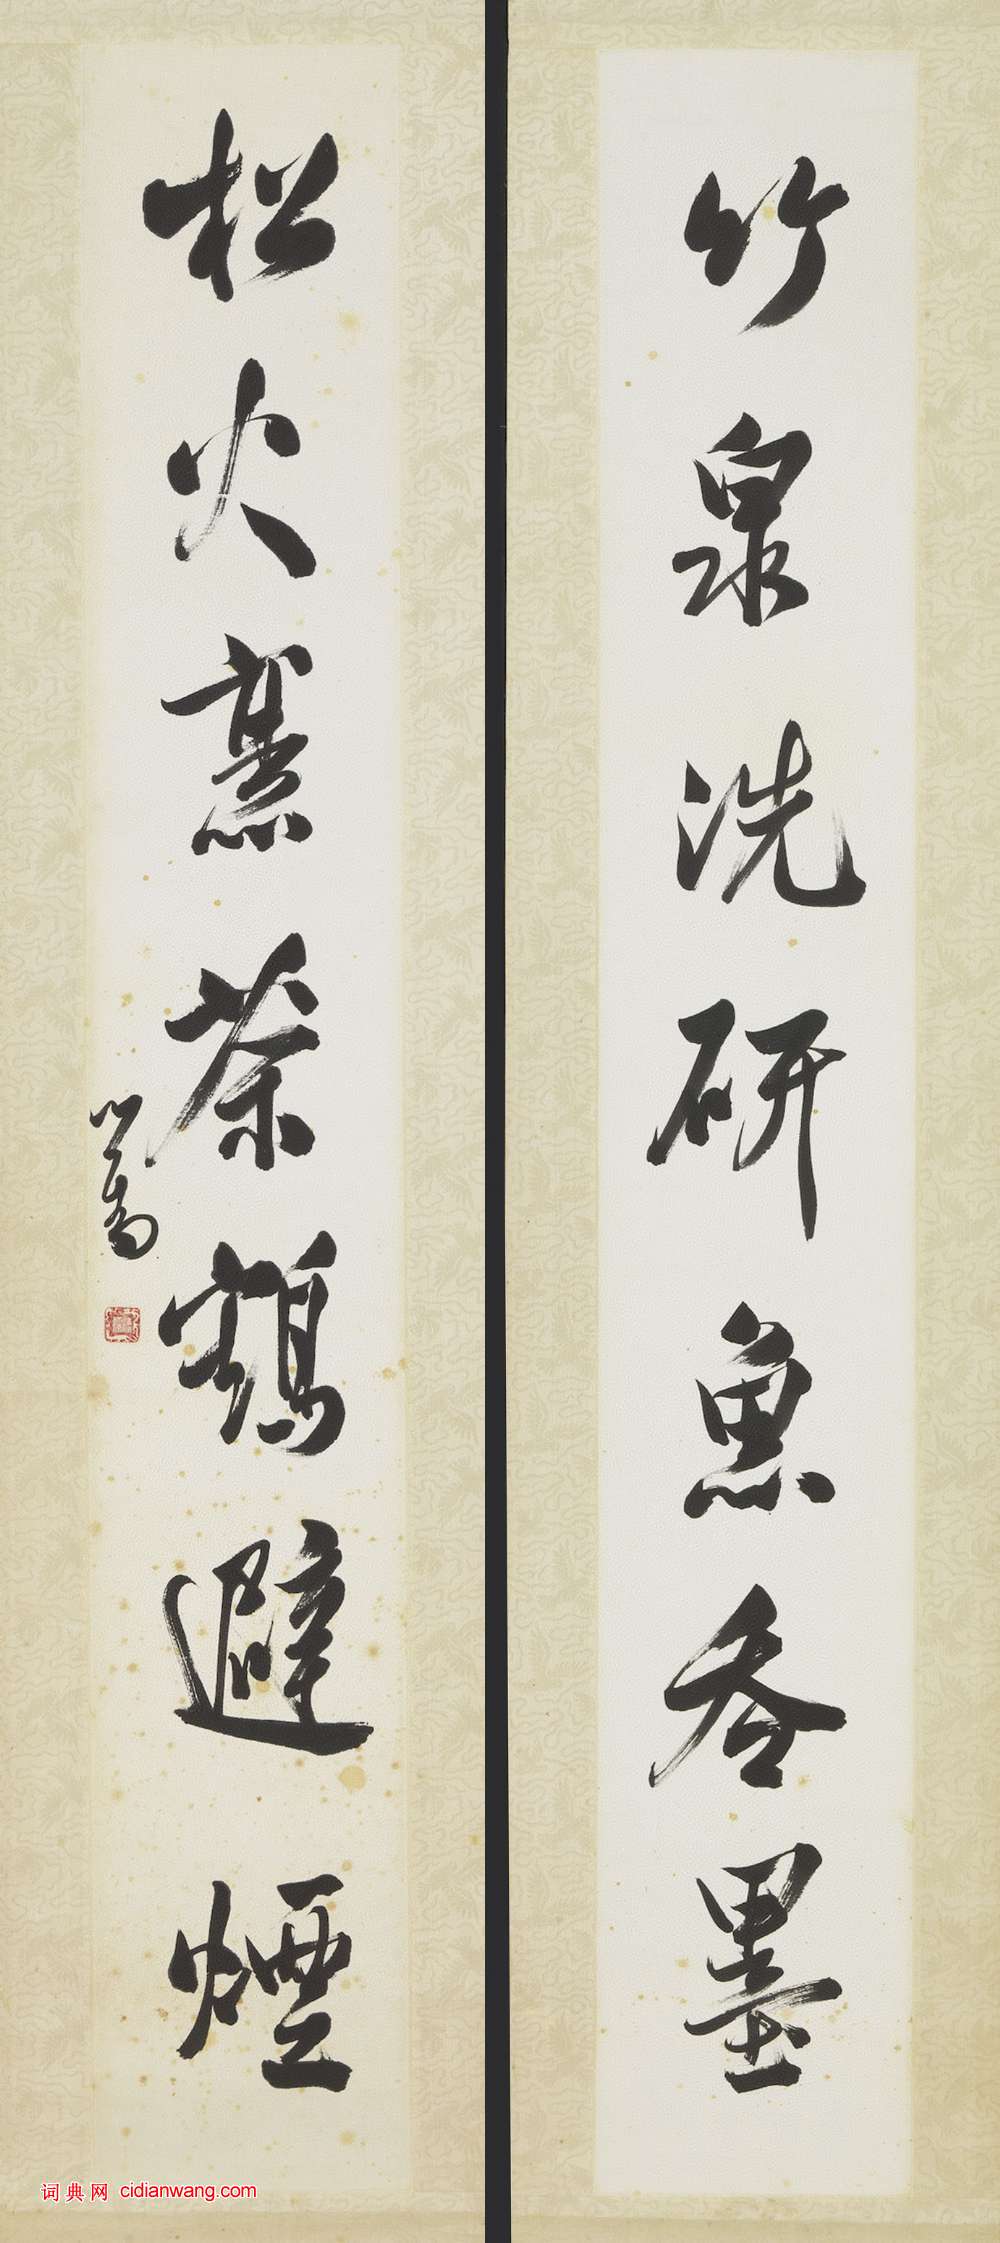 竹泉洗研魚吞墨
松火烹茶鶴避煙
心畬
词典网 cidianwang.com